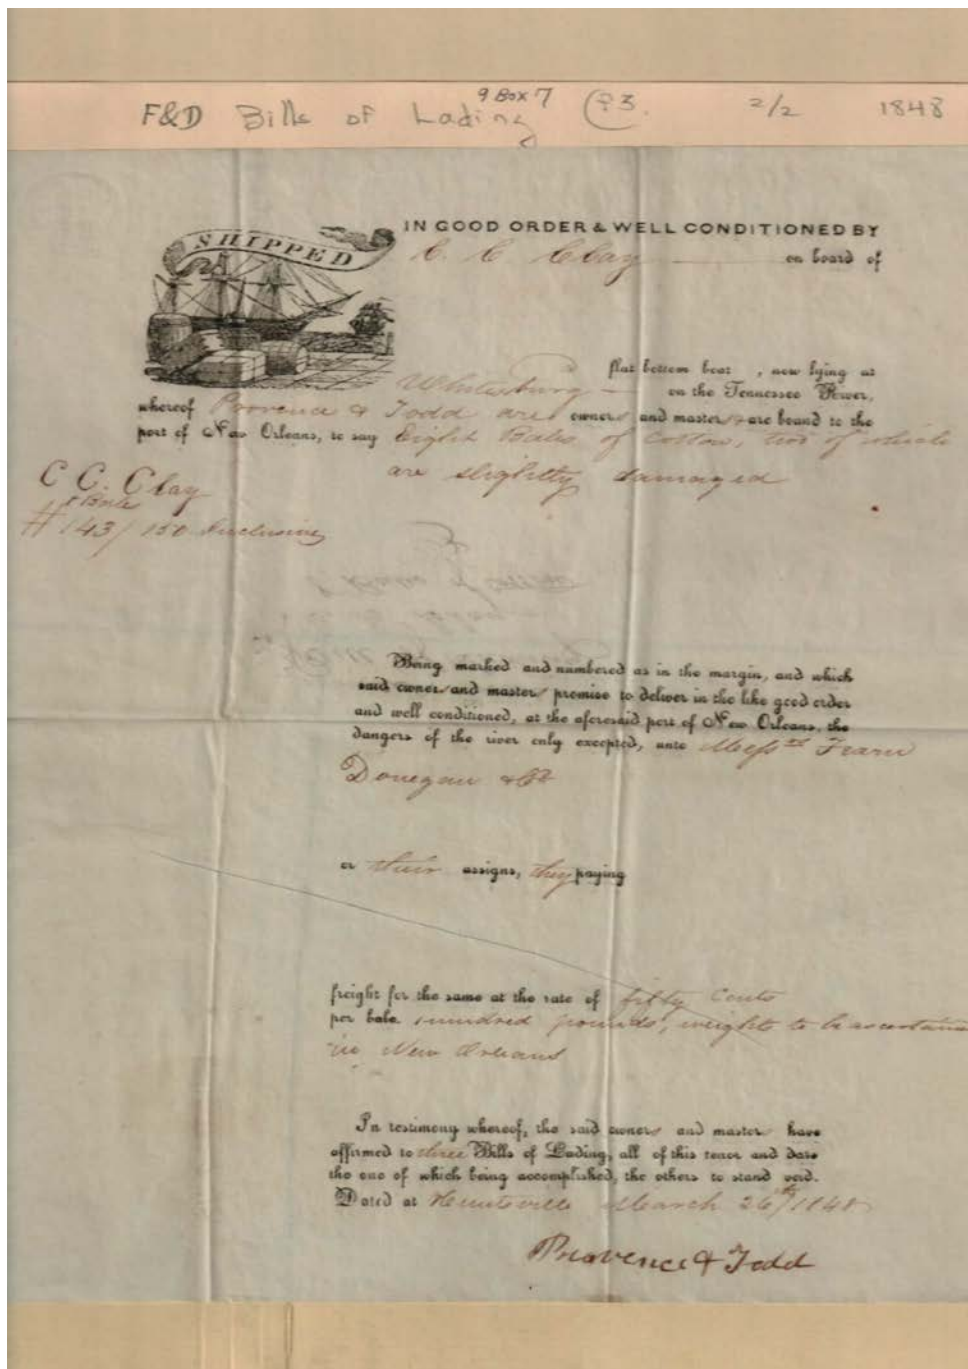 9 Box 7
F&D Bills of Lading 93. 2/2 1848
SHIPPED
IN GOOD ORDER & WELL CONDITIONED BY
C. C Clay on board of
flat bottom boat , now lying at
Whitesburg on the Tennessee River,
whereof Provence & Todd are owners and masters are bound to the
port of New Orleans, to say Eight Bales of Cotton, two of which
are slightly damaged
C C. Clay
8 Bales
# 143/150 Inclusive
Being marked and numbered as in the margin, and which
said owner and master promise to deliver in the like good order
and well conditioned, at the aforesaid port of New Orleans, the
dangers of the river only excepted, unto Messrs Fearn
Donegan & Co
or their assigns, they paying
freight for the same at the rate of fifty Cents
per bale hundred pounds, weights to be ascertained
in New Orleans
In testimony whereof, the said owners and masters have
affirmed to three Bills of Lading, all of this tenor and date
the one of which being accomplished, the others to stand void.
Dated at Huntsville March 26th 1848
Provence & Todd